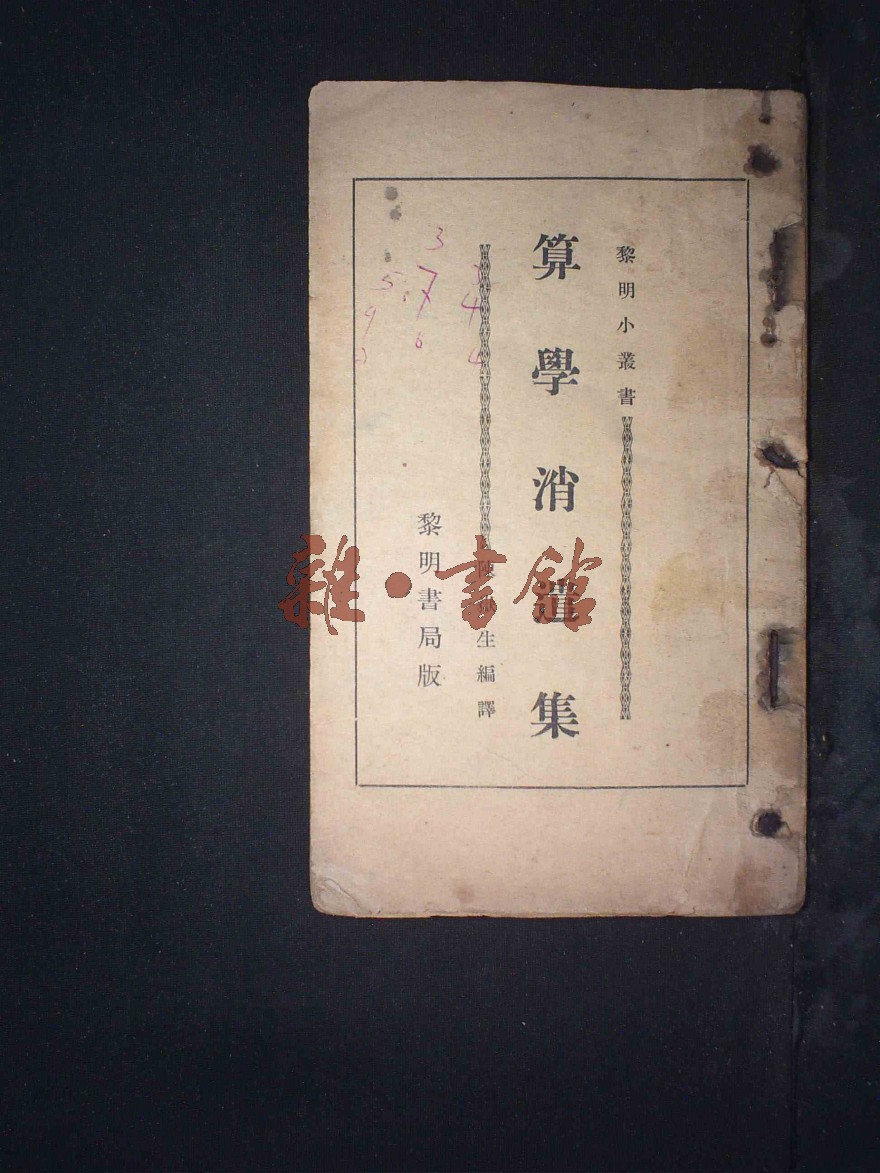 黎明小叢書
算學消遣集
陳嶽生編譯
黎明書局版
3
7
4
5
9
6
雜·書館